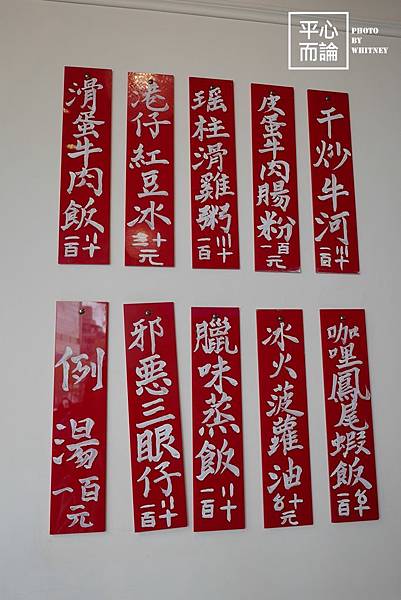 平心
而論
PHOTO
BY
WHITNEY
滑蛋牛肉飯
一百二十
港仔紅豆冰
三十
元
瑤柱滑雞粥
一百
皮蛋牛肉腸粉
一百
元
干炒牛河
一百
例湯
一百
元
邪惡三眼仔
一百二十
臘味蒸飯
一百二十
冰火菠蘿油
十
元
咖哩鳳尾蝦飯
一百